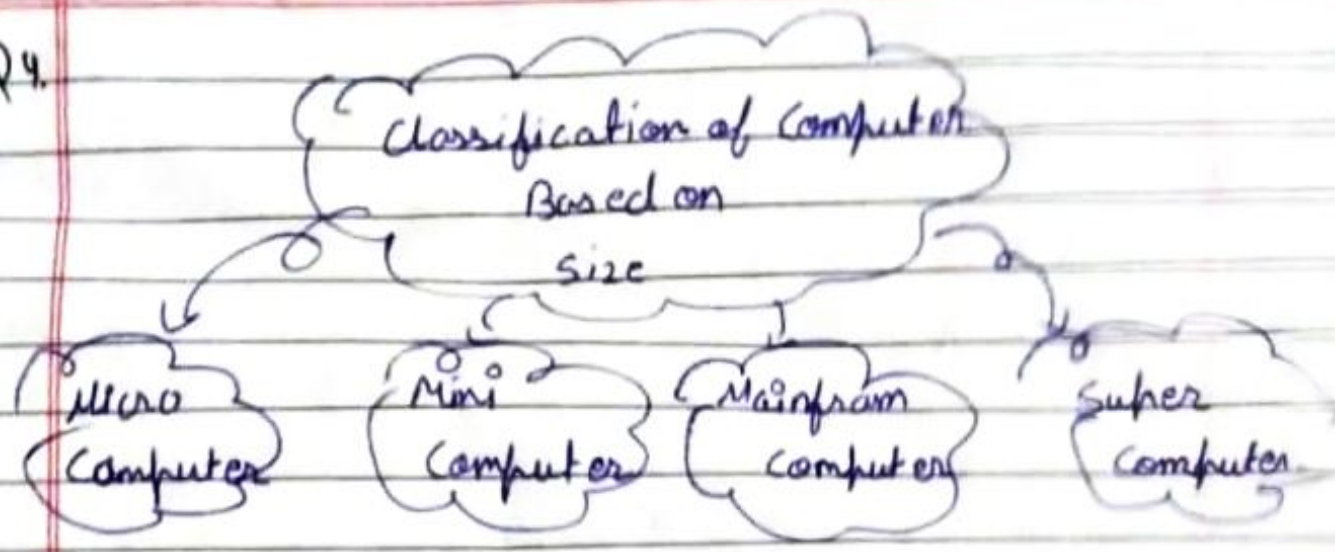 Q4.
Classification of Computer
Based on
Size
Micro
Computer
Mini
Computer
Mainfram
Computer
Super
Computer